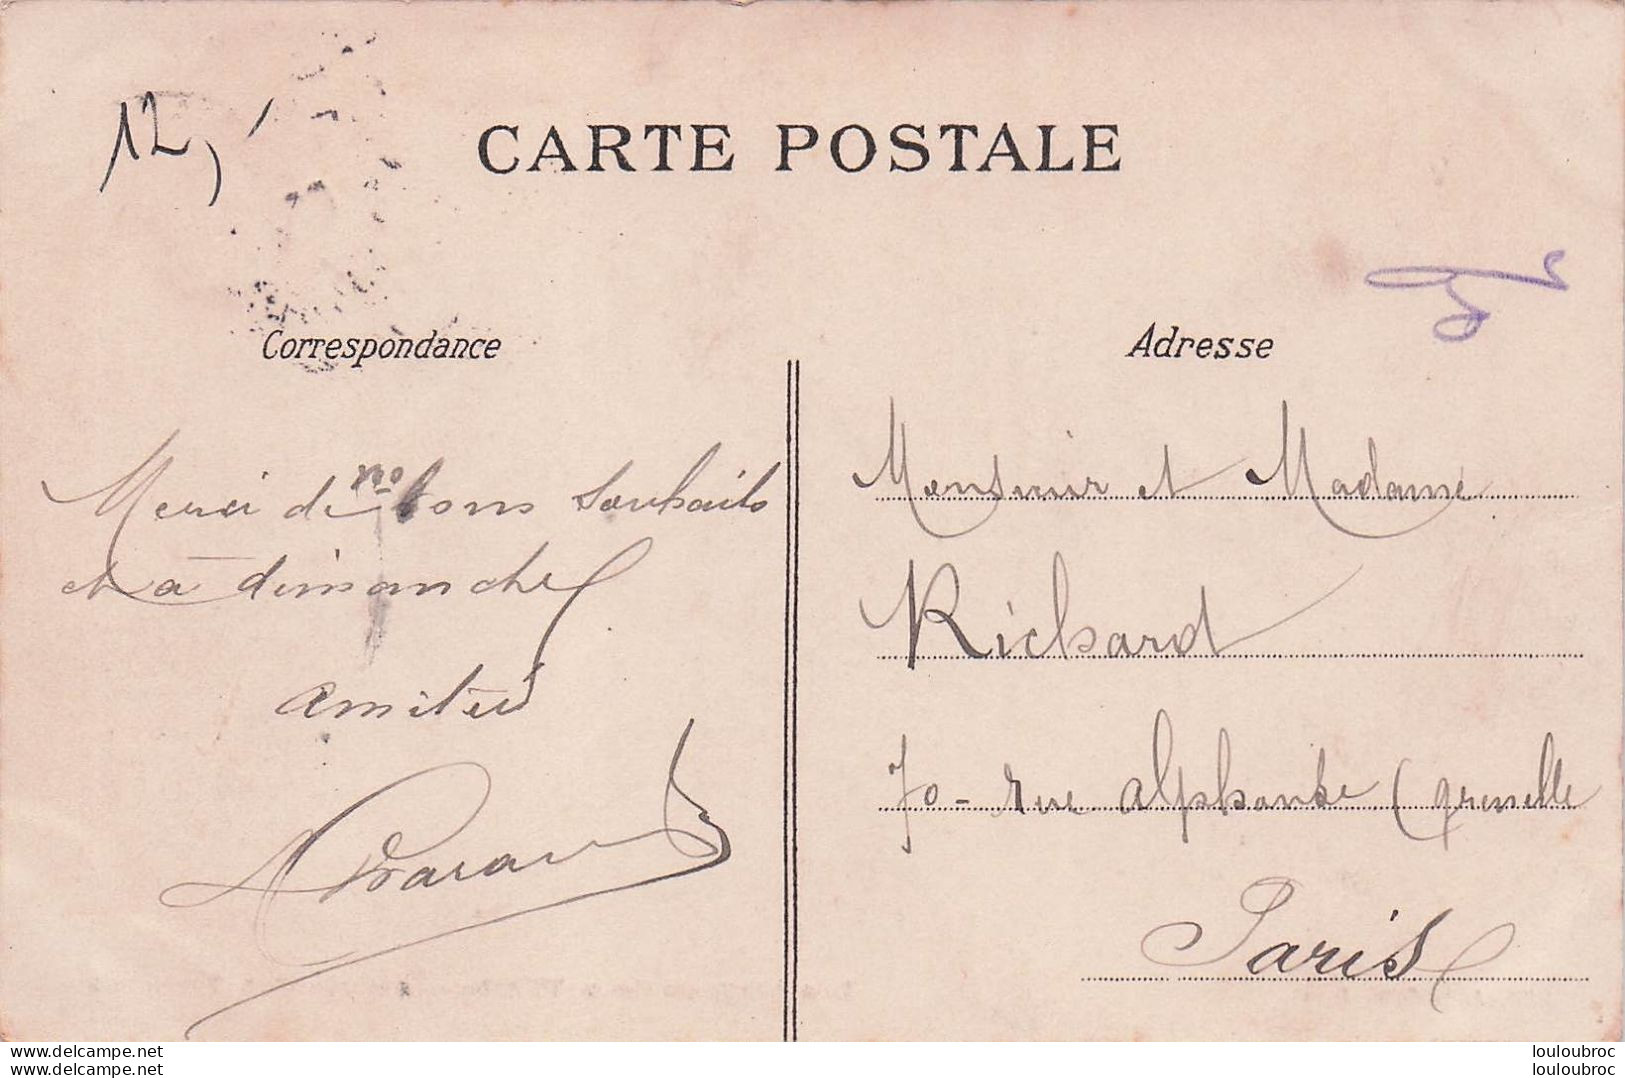 12,
CARTE POSTALE
Correspondance
Adresse
Merci de vos bons souhaits
et à dimanche
amitiés
Monsieur et Madame
Richard
70 - rue Alphonse (grenelle
Paris
www.delcampe.net
louloubroc
www.delcampe.net
louloubroc